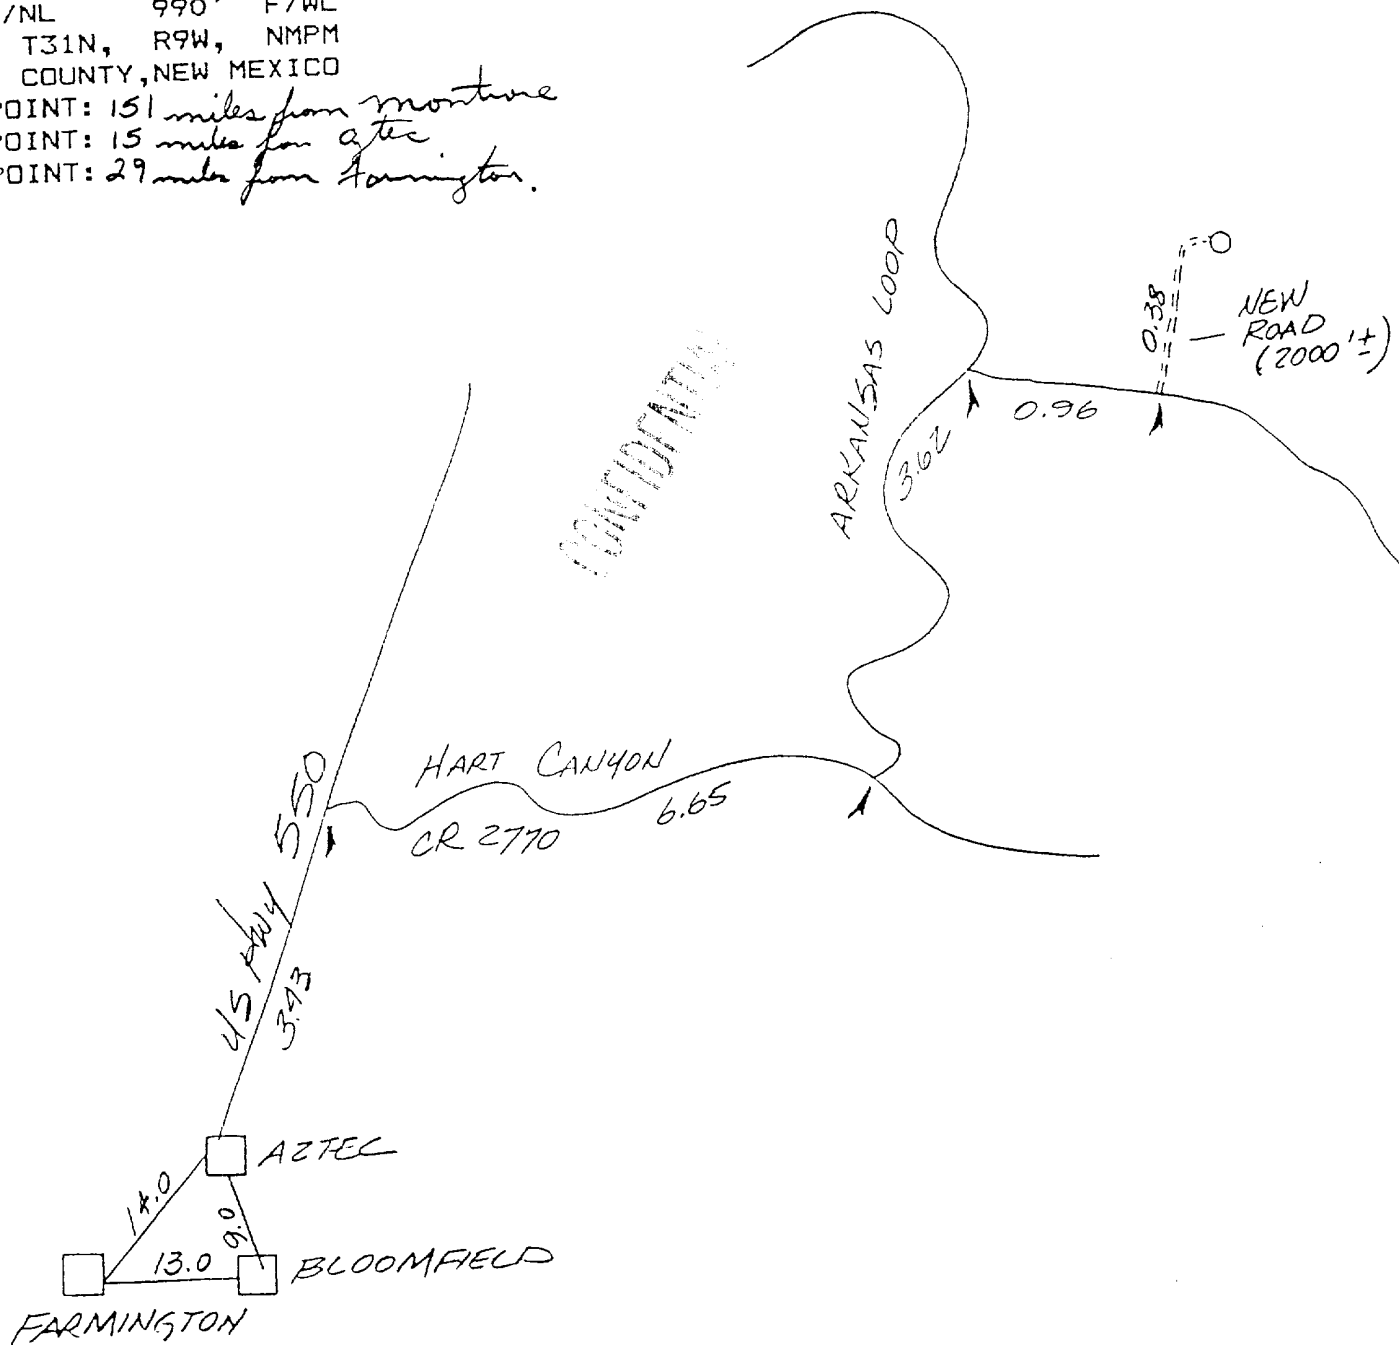 /NL 990' F/WL
T31N, R9W, NMPM
COUNTY, NEW MEXICO
POINT: 151 miles from montrose
POINT: 15 miles from aztec
POINT: 29 miles from Farmington.
ARKANSAS LOOP
0.38
NEW
ROAD
(2000'±)
CONFIDENTIAL
3.62
0.96
HART CANYON
6.65
CR 2770
US HWY 550
3.43
AZTEC
14.0
9.0
13.0
BLOOMFIELD
FARMINGTON